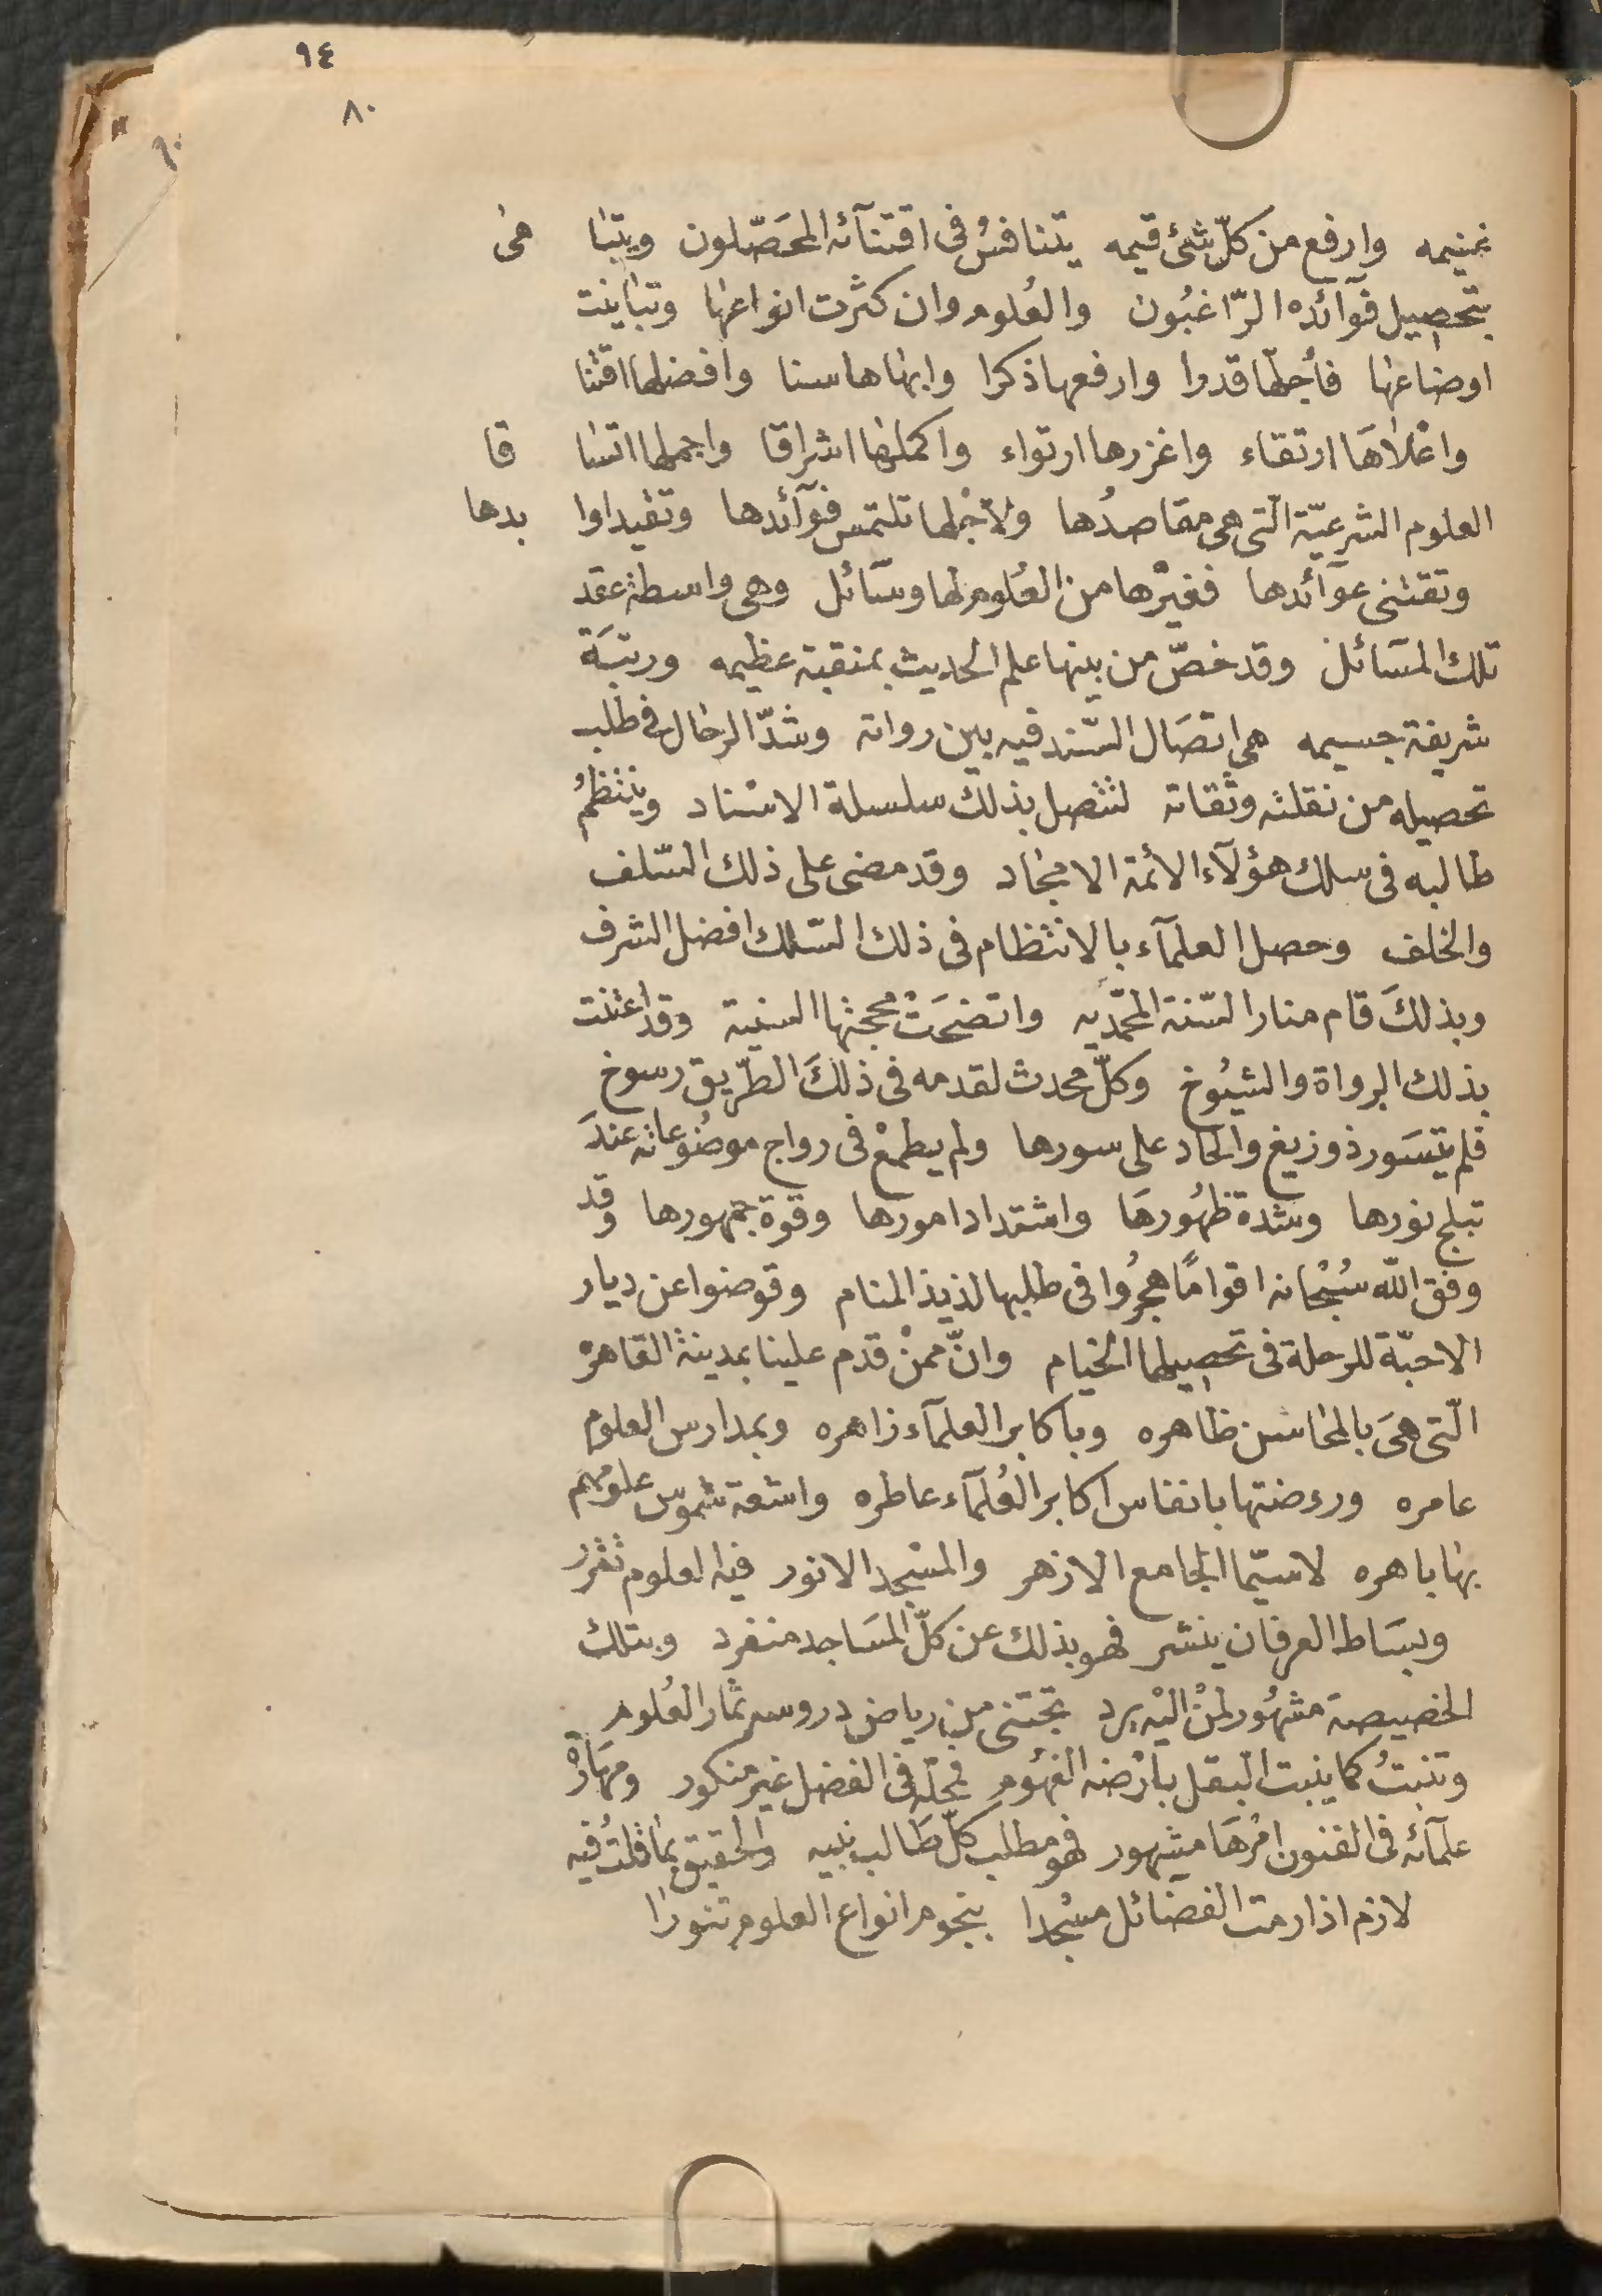 ٩٤
٨٠
٦٠
غنيمه وارفع من كلّ شئ قيمه يتنافسُ فى اقتنآئه المحَصّلون ويتباهى
بتحصيل فوآئده الرّاغبُون والعُلوم وان كثرت انواعها وتباينت
اوضاعها فأجلّها قدرا وارفعها ذكرا وابهاها سنا وافضلها اقتنا
واعْلاهَا ارتقاء واغزرها ارتواء واكملها اشراقا واجملها اتساقا
العلوم الشرعيّة الّتى هى مقاصدُها ولاجْلها تلتمس فوآئدها وتقيد اوابدها
وتقتنى عوآئدها فغيْرها من العُلوم لها وسَآئل وهى واسطة عقد
تلك المسَائل وقد خصّ من بينها علم الحديث بمنقبة عظيمه ورتبَة
شريفة جسيمه هى اتصَال السّند فيه بين رواته وشدّ الرحال فى طلب
تحصيله من نقلته وثقاته لتتصل بذلك سلسلة الاسْناد وينتظمُ
طالبه فى سلك هؤلآء الأئمة الامجاد وقد مضى على ذلك السّلف
والخلف وحصل العلمآء بالانتظام فى ذلك السّلك افضل الشرف
وبذلكَ قام منار السّنة المحمّديه واتضحَتْ محجتها السنية وقد اعتنت
بذلك الرواة والشيُوخ وكلّ محدث لقدمه فى ذلكَ الطّريق رسوخ
فلم يتسَور ذو زيغ والحاد على سورها ولم يطمعْ فى رواج موضُوعاته عندَ
تبلج نورها وشدة ظهُورهَا واشتداد امورها وقوة جمهورها وقد
وفق اللّه سُبْحانه اقوامًا هجرُوا فى طلبها لذيذ المنام وقوضوا عن ديار
الاحبّة للرحلة فى تحصيلها الخيام وانّ ممنْ قدم علينا بمدينة القاهرة
الّتى هىَ بالمحاسن ظاهره وباكابر العلمآء زاهره وبمدارس العلوم
عامره وروضتها بانفاس اكابر العُلمآء عاطره واشعة شموس علومهم
بها باهره لاسيّما الجامع الازهر والمسْجد الانور فيه العلوم تقرر
وبسَاط العرفان ينشر فهو بذلك عن كلّ المسَاجد منفرد وبتلك
الخصيصة مشهُور لمنْ اليْه يرد تجتنى من رياض دروسه ثمار العُلوم
وتنبتُ كما ينبت البقل بارْضه الفهُوم فمحلّه فى الفضل غير منكور ومهَارةْ
علمآئه فى الفنون امْرهَا مشهور فهو مطلب كلّ طَالب نبيه والحقيق بما قلتُ فيه
لازم اذا رمت الفضائل مسْجدا بنجوم انواع العلوم تنورا